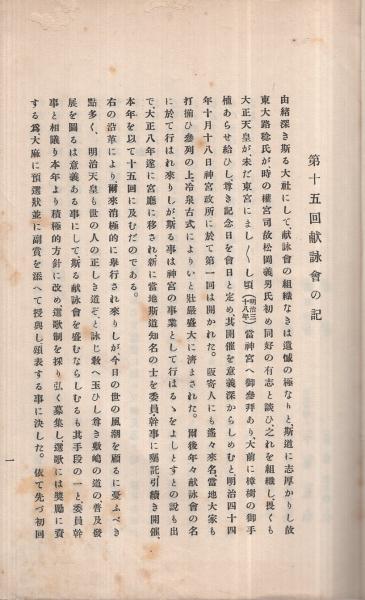 第十五回献詠會の記
由緒深き斯る大社にして、献詠會の組織なきは遺憾の極なりと、斯道に志厚かりし故
東大路稔氏が、時の權宮司故松岡義男氏初め同好の有志と談ひ、之れを組織し、畏くも
大正天皇が、未だ東宮にましく〳〵し頃(明治三十八年)當神宮へ御參拜あり、大前に樟樹の御手
植あらせ給ひし、尊き記念日を會日と定め、其開催を意義深からしめむと、明治四十四
年十月十八日神宮政所に於て第一回は開かれた。阪寄人にも遙々來名、當地大家も
打揃ひ參列の上、冷泉古式によりいと壯嚴盛大に濟まされた。爾後年々献詠會の名
に於て行はれ來りしが、斯る事は神宮の事業として行はるゝをよしとすとの說も出
で、大正八年遂に宮廳に移され、新に當地斯道知名の士を委員幹事に囑託、引續き開催、
本年を以て十五回に及むだのである。
右の沿革により、爾來消極的に擧行され來りしが、今日の世の風潮を顧るに憂ふべき
點多く、 明治天皇も世の人の正しき道ぞと詠じ敎へ玉ひし尊き敷嶋の道の、普及發
展を圖るは意義ある事にして、斯る献詠會を盛むならしむるも其手段の一と、委員幹
事と相議り、本年より積極的方針に改め、選歌制を採り弘く募集し、選歌には奬勵に資
する爲大麻に預選狀並に副賞を添へて授與し、頒表する事に決した。依て先づ初回
一